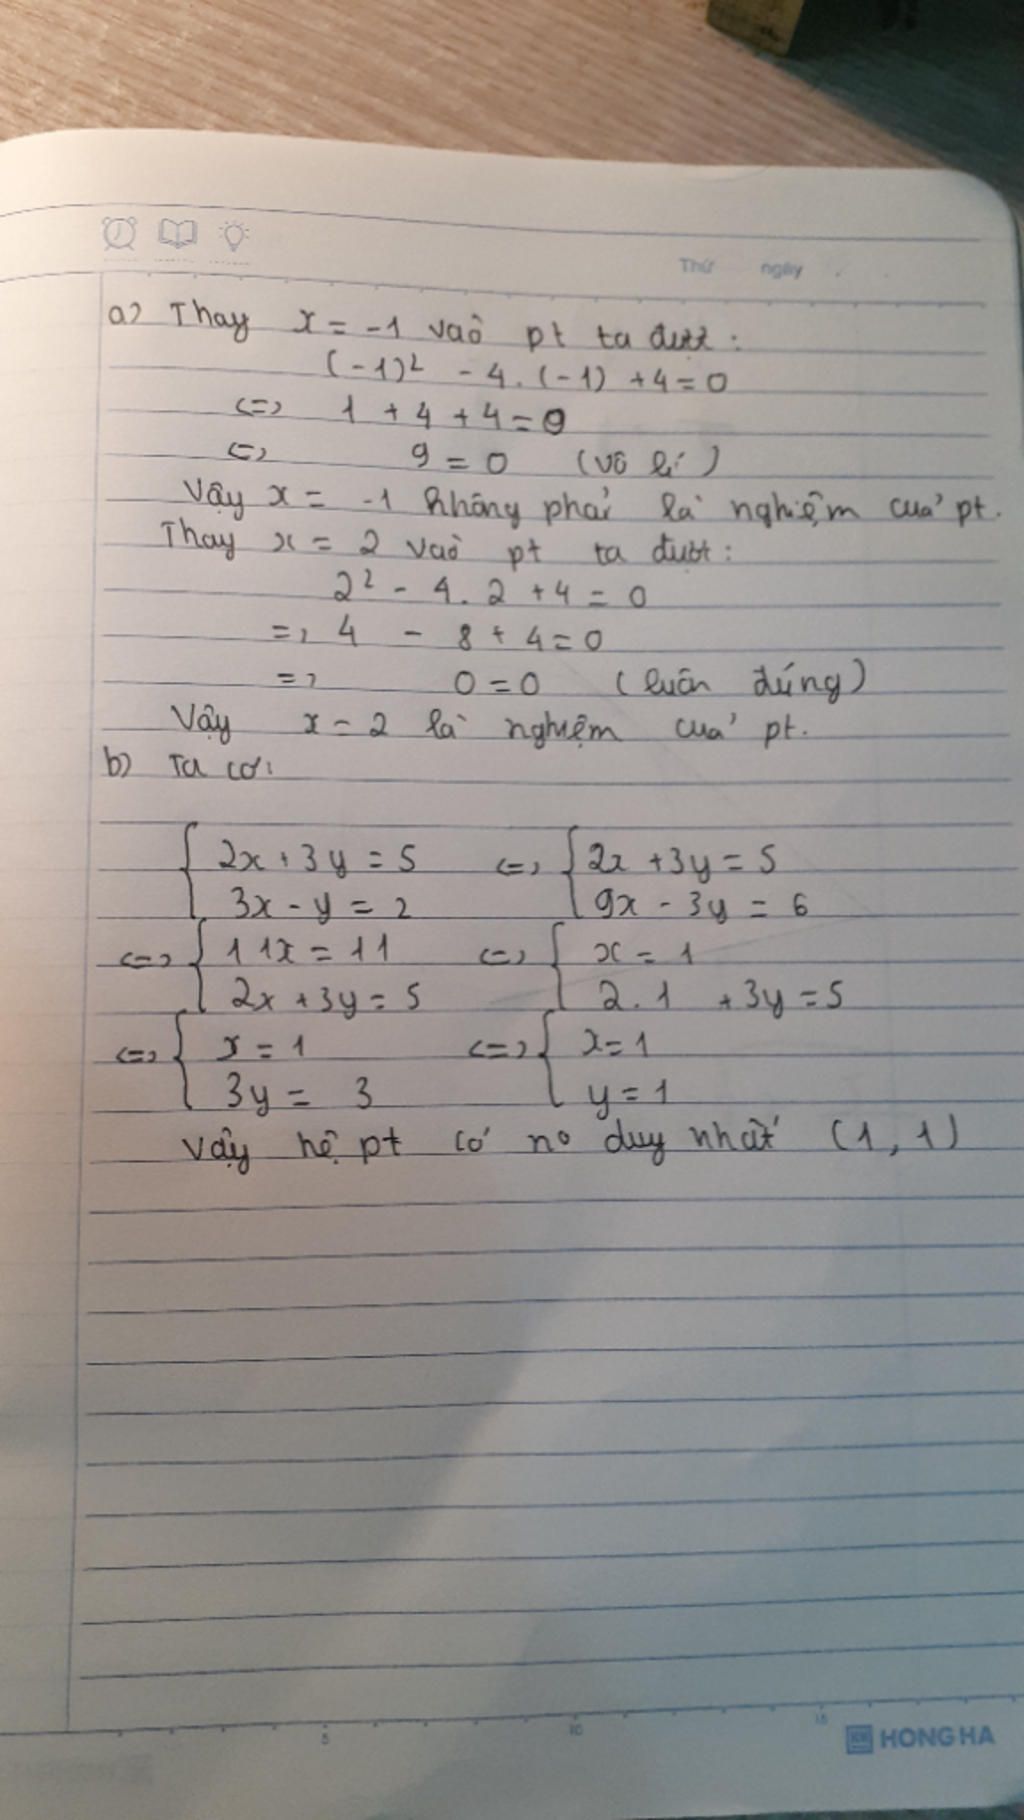 Thứ ngày
a) Thay x = -1 vào pt ta được :
(-1)² - 4. (-1) + 4 = 0
<=> 1 + 4 + 4 = 0
<=> 9 = 0 (vô lí)
Vậy x = -1 không phải là nghiệm của pt.
Thay x = 2 vào pt ta được :
2² - 4. 2 + 4 = 0
=> 4 - 8 + 4 = 0
=> 0 = 0 (luôn đúng)
Vậy x = 2 là nghiệm của pt.
b) Ta có:
{ 2x + 3y = 5 <=> { 2x + 3y = 5
3x - y = 2 9x - 3y = 6
<=> { 11x = 11 <=> { x = 1
2x + 3y = 5 2.1 + 3y = 5
<=> { x = 1 <=> { x = 1
3y = 3 y = 1
Vậy hệ pt có no duy nhất (1, 1)
5 10 15
HONG HA